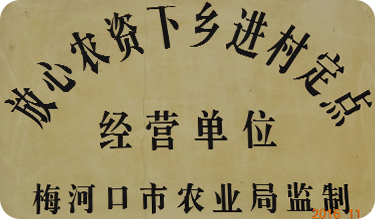 放心农资下乡进村定点
经营单位
梅河口市农业局监制